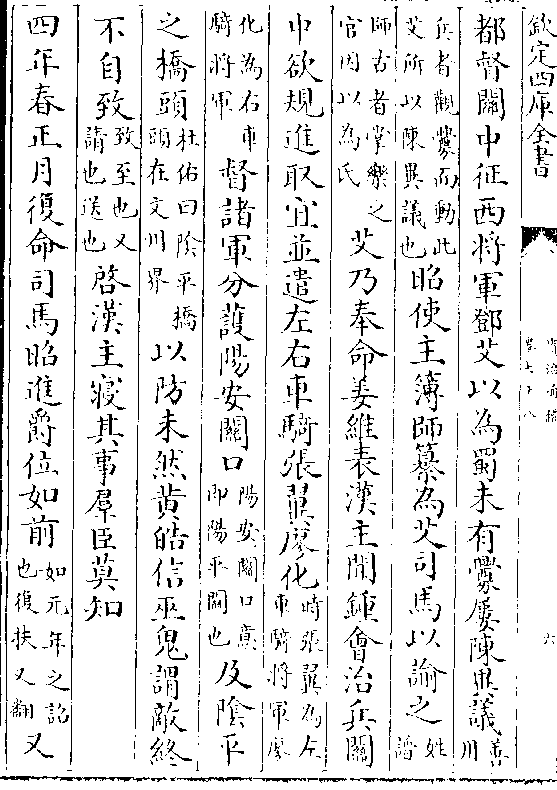 欽定四庫全書
六
都督關中征西將軍鄧艾以為蜀未有釁屢陳異議善用
兵者觀釁而動此艾所以陳異議也昭使主簿師纂為艾司馬以諭之姓譜
師古者掌樂之官因以為氏艾乃奉命姜維表漢主聞鍾會治兵關
中欲規進取宜並遣左右車騎張翼廖化時張翼為左車騎將軍廖
化為右車騎將軍督諸軍分護陽安關口陽安關口意即陽平關也及陰平
之橋頭杜佑曰陰平橋頭在文州界以防未然黄皓信巫鬼謂敵終
不自致致至也又請也送也啓漢主寢其事羣臣莫知
四年春正月復命司馬昭進爵位如前如元年之詔也復扶又翻又